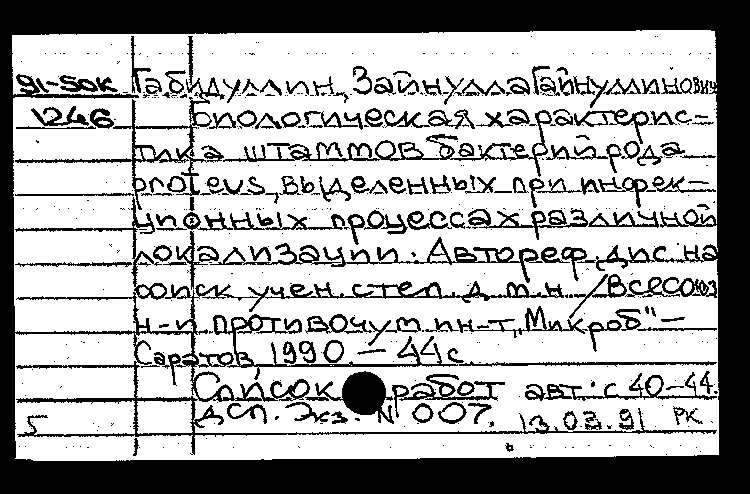 91-50к Габидуллин, Зайнулла Гайнуллинович
1246 Биологическая характерис-
тика штаммов бактерий рода
proteus, выделенных при инфек-
ционных процессах различной
локализации. Автореф. дис. на
соиск. учен. степ. д. м. н. / Всесоюз
н-и противочум. ин-т „Микроб" –
Саратов, 1990. – 44 с.
Список работ авт.: с 40-44.
5 ДСП. Экз. N 007. 13.03.91 РК